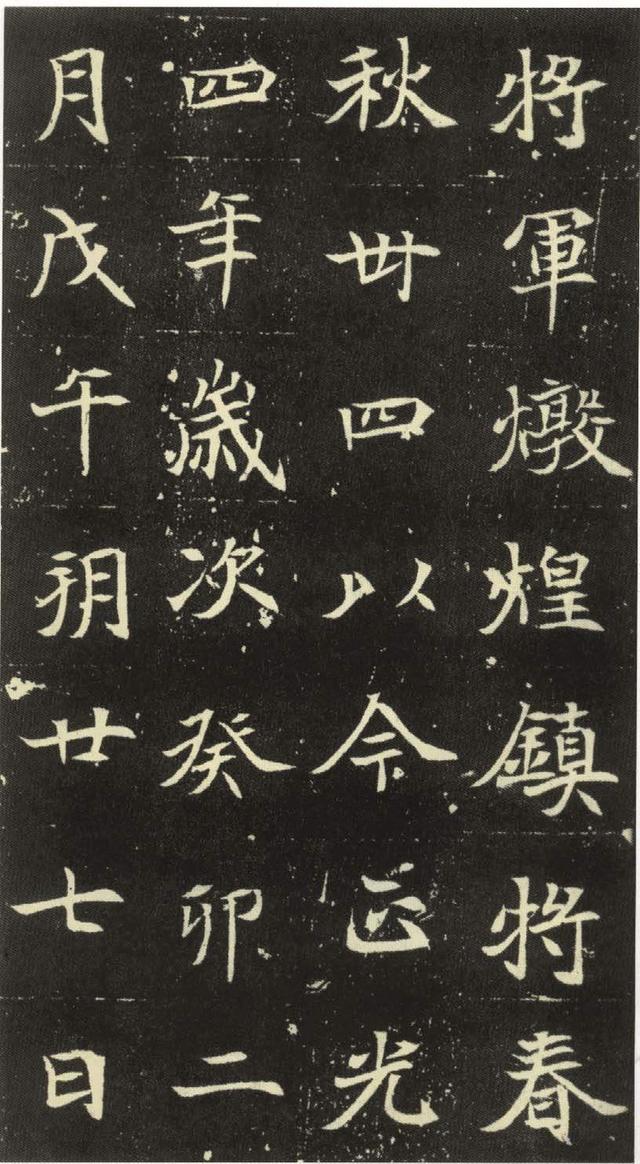 將軍燉煌鎮將春
秋丗四以今正光
四年歲次癸卯二
月戊午朔廿七日